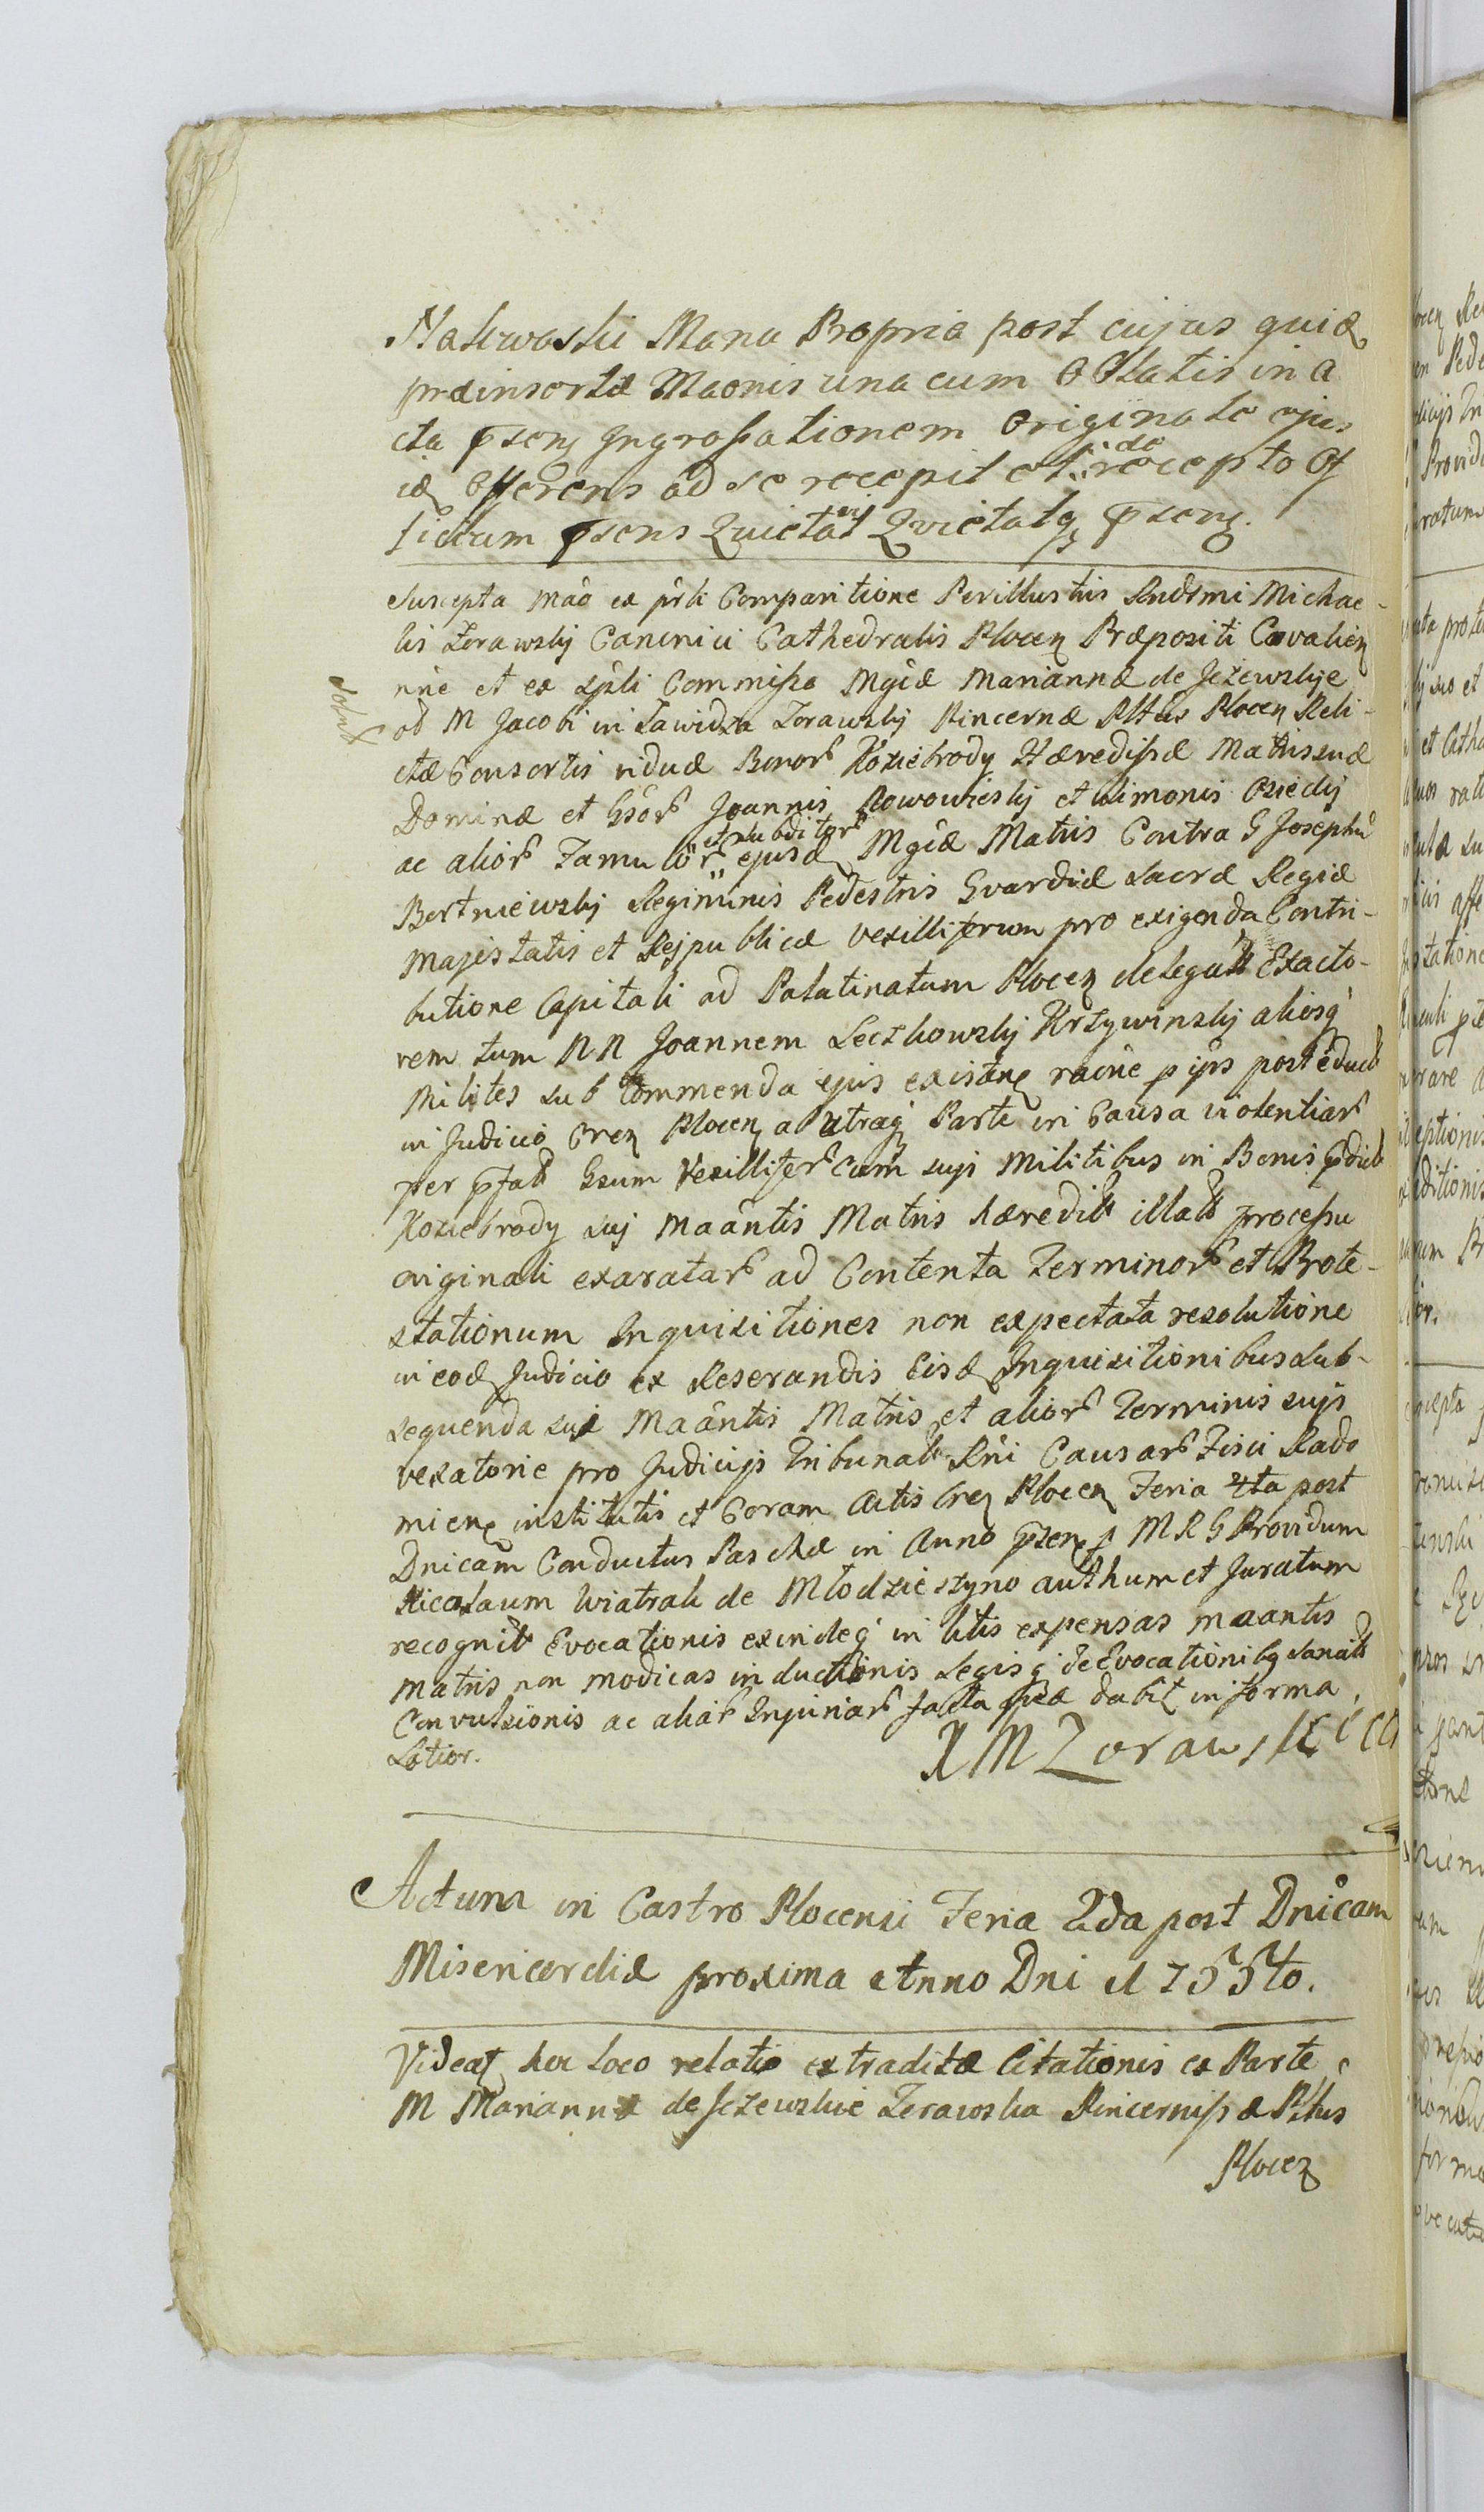 Nakwaski Manu Propria post cujus quid
præinsertæ Mãonis una cum Oblatis in A
cta p̃sen Ingrossationem Originale ejus
id Offerens ad se recepit et de recepto Of
ficium p̃sens Quietavit Quietatq p̃sen.
Suscepta Mãõ ex pñli Comparitione Perillustris Rndsmi Michae-
lis Zorawskj Canonici Cathedralis Plocen Præpositi
nñe et ex spãli Commisso Mgcæ Mariannæ de Jeżewskje
Solut
od M Jacobi in Zorawskj Pincernæ Pltũs Plocen Reli-
ctæ Consortis viduæ Bonor Koziebrody Hæredissæ Matris suæ
Dominæ et Gsõr Joannis Nowowieskj et Simonis Osiedij
ac alior Famulõr et subditor ejusd Mgcæ Matris Contra G Josephũ
Bortniewskj Regiminis Pedestris Gvardiæ Sacræ Regiæ
Majestatis et Rejpublicæ vexilliferum pro exigenda Contri-
butione Capitali ad Palatinatum Plocen delegatt Exacto-
rem tum NN Joannem Leczkowskj Krzywinskj aliosq
Milites sub Commenda ejus existen raõne p ipõs post educt
in Judicio Cren Plocen ab utraq Parte in Causa violentiar
per p̃fatt Gsum Vexillifer Cum sujs Militibus in Bonis p̃dict
Koziebrody suj Maãntis Matris hæredit illatt processu
originali exaratar ad Contenta Terminor et Prote-
stationum Inquisitiones non expectata resolutione
in eod Judicio ex Reserandis Eisd Inquisitionibus sub-
sequenda suæ Maãntis Matris et alior Terminis sujs
vexatorie pro Judicijs Tribunalt Rñi Causar Fisci Rado
mien institutis et Coram Actis Cren Plocen Feria 4ta post
Dnicam Conductus Paschæ in Anno p̃sen p M R G Providum
Nicolaum Wiatrak de Młodzieszyno authum et Juratum
recognitt Evocationis exindeq in litis expensas maantis
Matris non modicas inductionis Legisq de Evocationibq Sanatt
Convulsionis ac aliar Injuriar facta quæ dabit in forma
Latior.
X M Zorawski
Actum in Castro Plocensi Feria 2da post Dnicam
Misericordiæ proxima Anno Dni M 755to.
Videat hic loco relatio extraditæ Citationis ex Parte
M Mariannæ de Jeżewskie Zorawska Pincernissæ Pltus
Plocen